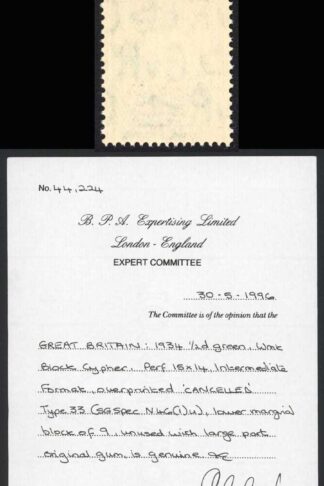 No. 44,224
B. P. A. Expertising Limited
London - England
EXPERT COMMITTEE
30-5-1996
The Committee is of the opinion that the
GREAT BRITAIN: 1934 ½d green, Wmk
Block Cypher, Perf 15x14, Intermediate
Format, overprinted 'CANCELLED'
Type 33 (SG Spec N46(1)u), lower marginal
block of 9, unused with large part
original gum, is genuine